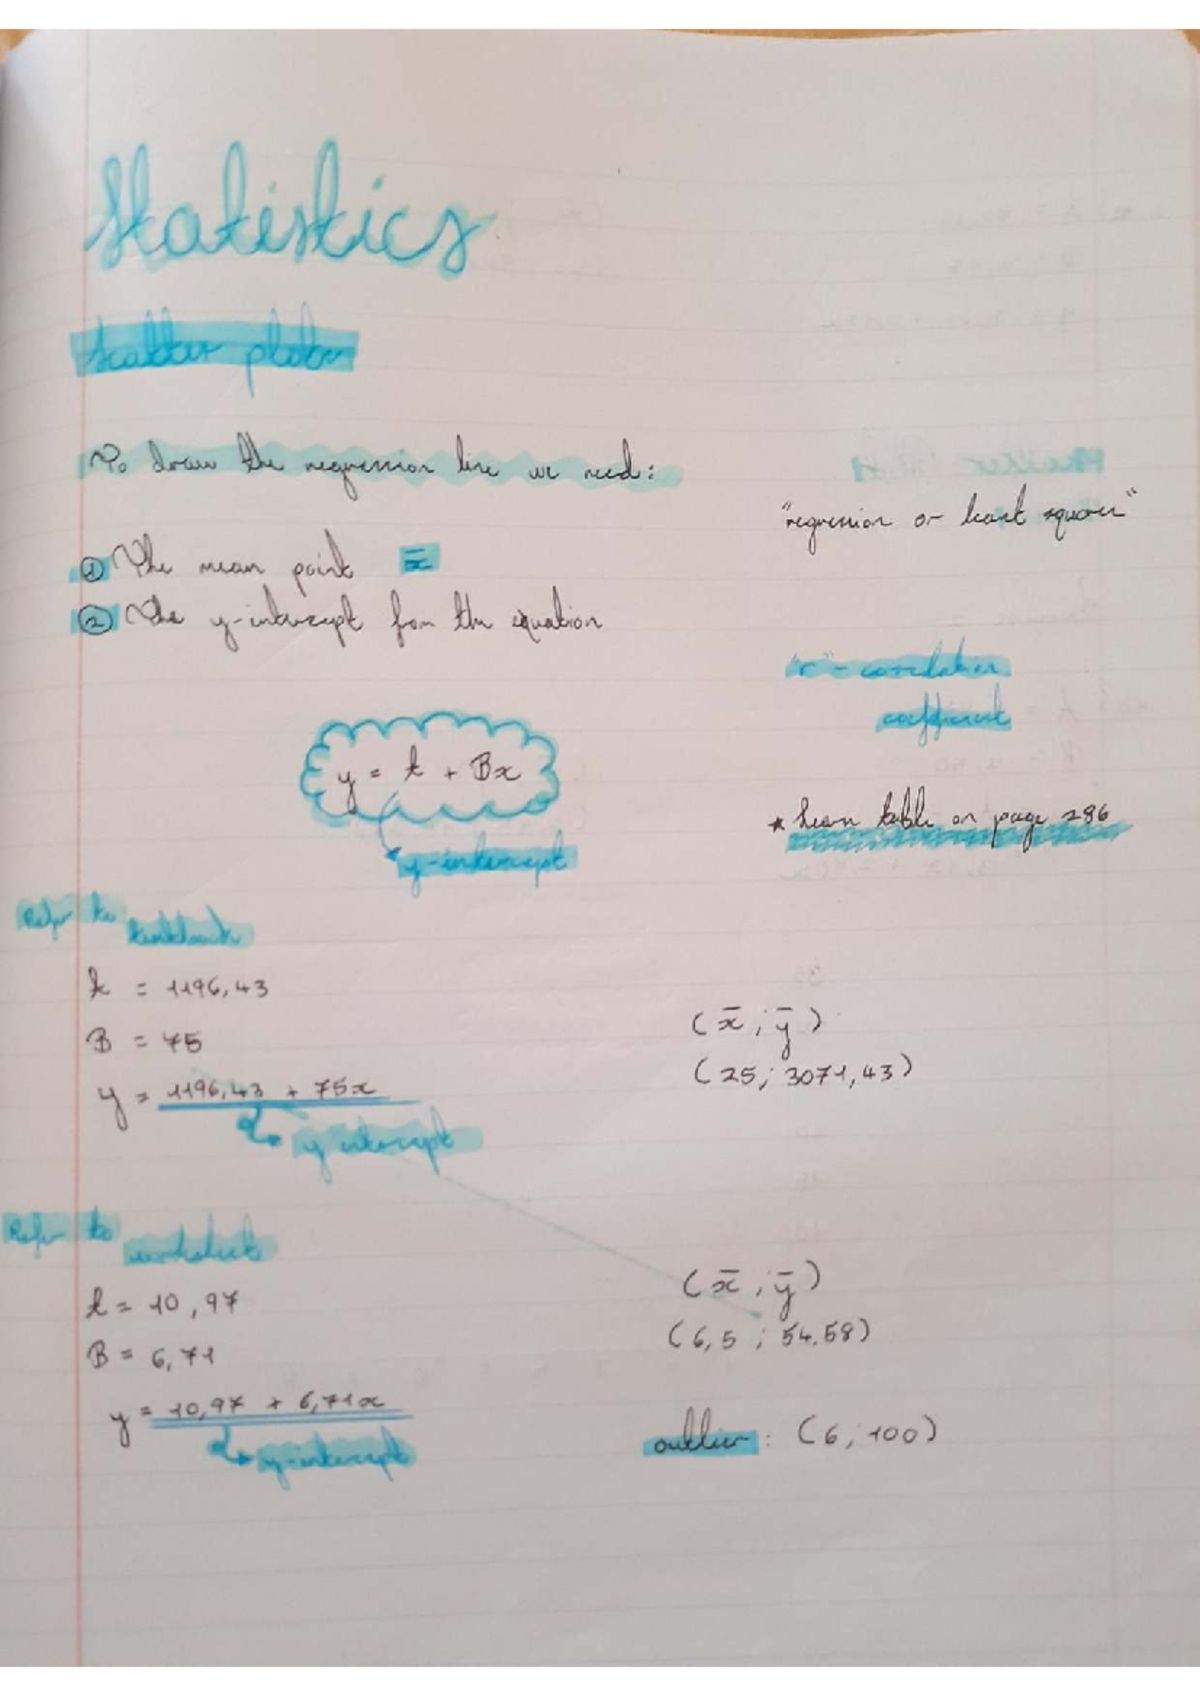 Statistics
Scatter plots
To draw the regression line we need:
"regression or least squares"
① The mean point x̄
② The y-intercept from the equation
"r" - correlation
coefficient
y = A + Bx
y-intercept
* Learn table on page 286
Refer to
textbook
A = 1196,43
B = 75
y = 1196,43 + 75x
y intercept
(x̄ ; ȳ)
(25; 3071,43)
Refer to
worksheet
A = 10,97
B = 6,71
y = 10,97 + 6,71x
y-intercept
(x̄ ; ȳ)
(6,5 ; 54,58)
outlier : (6 ; 100)